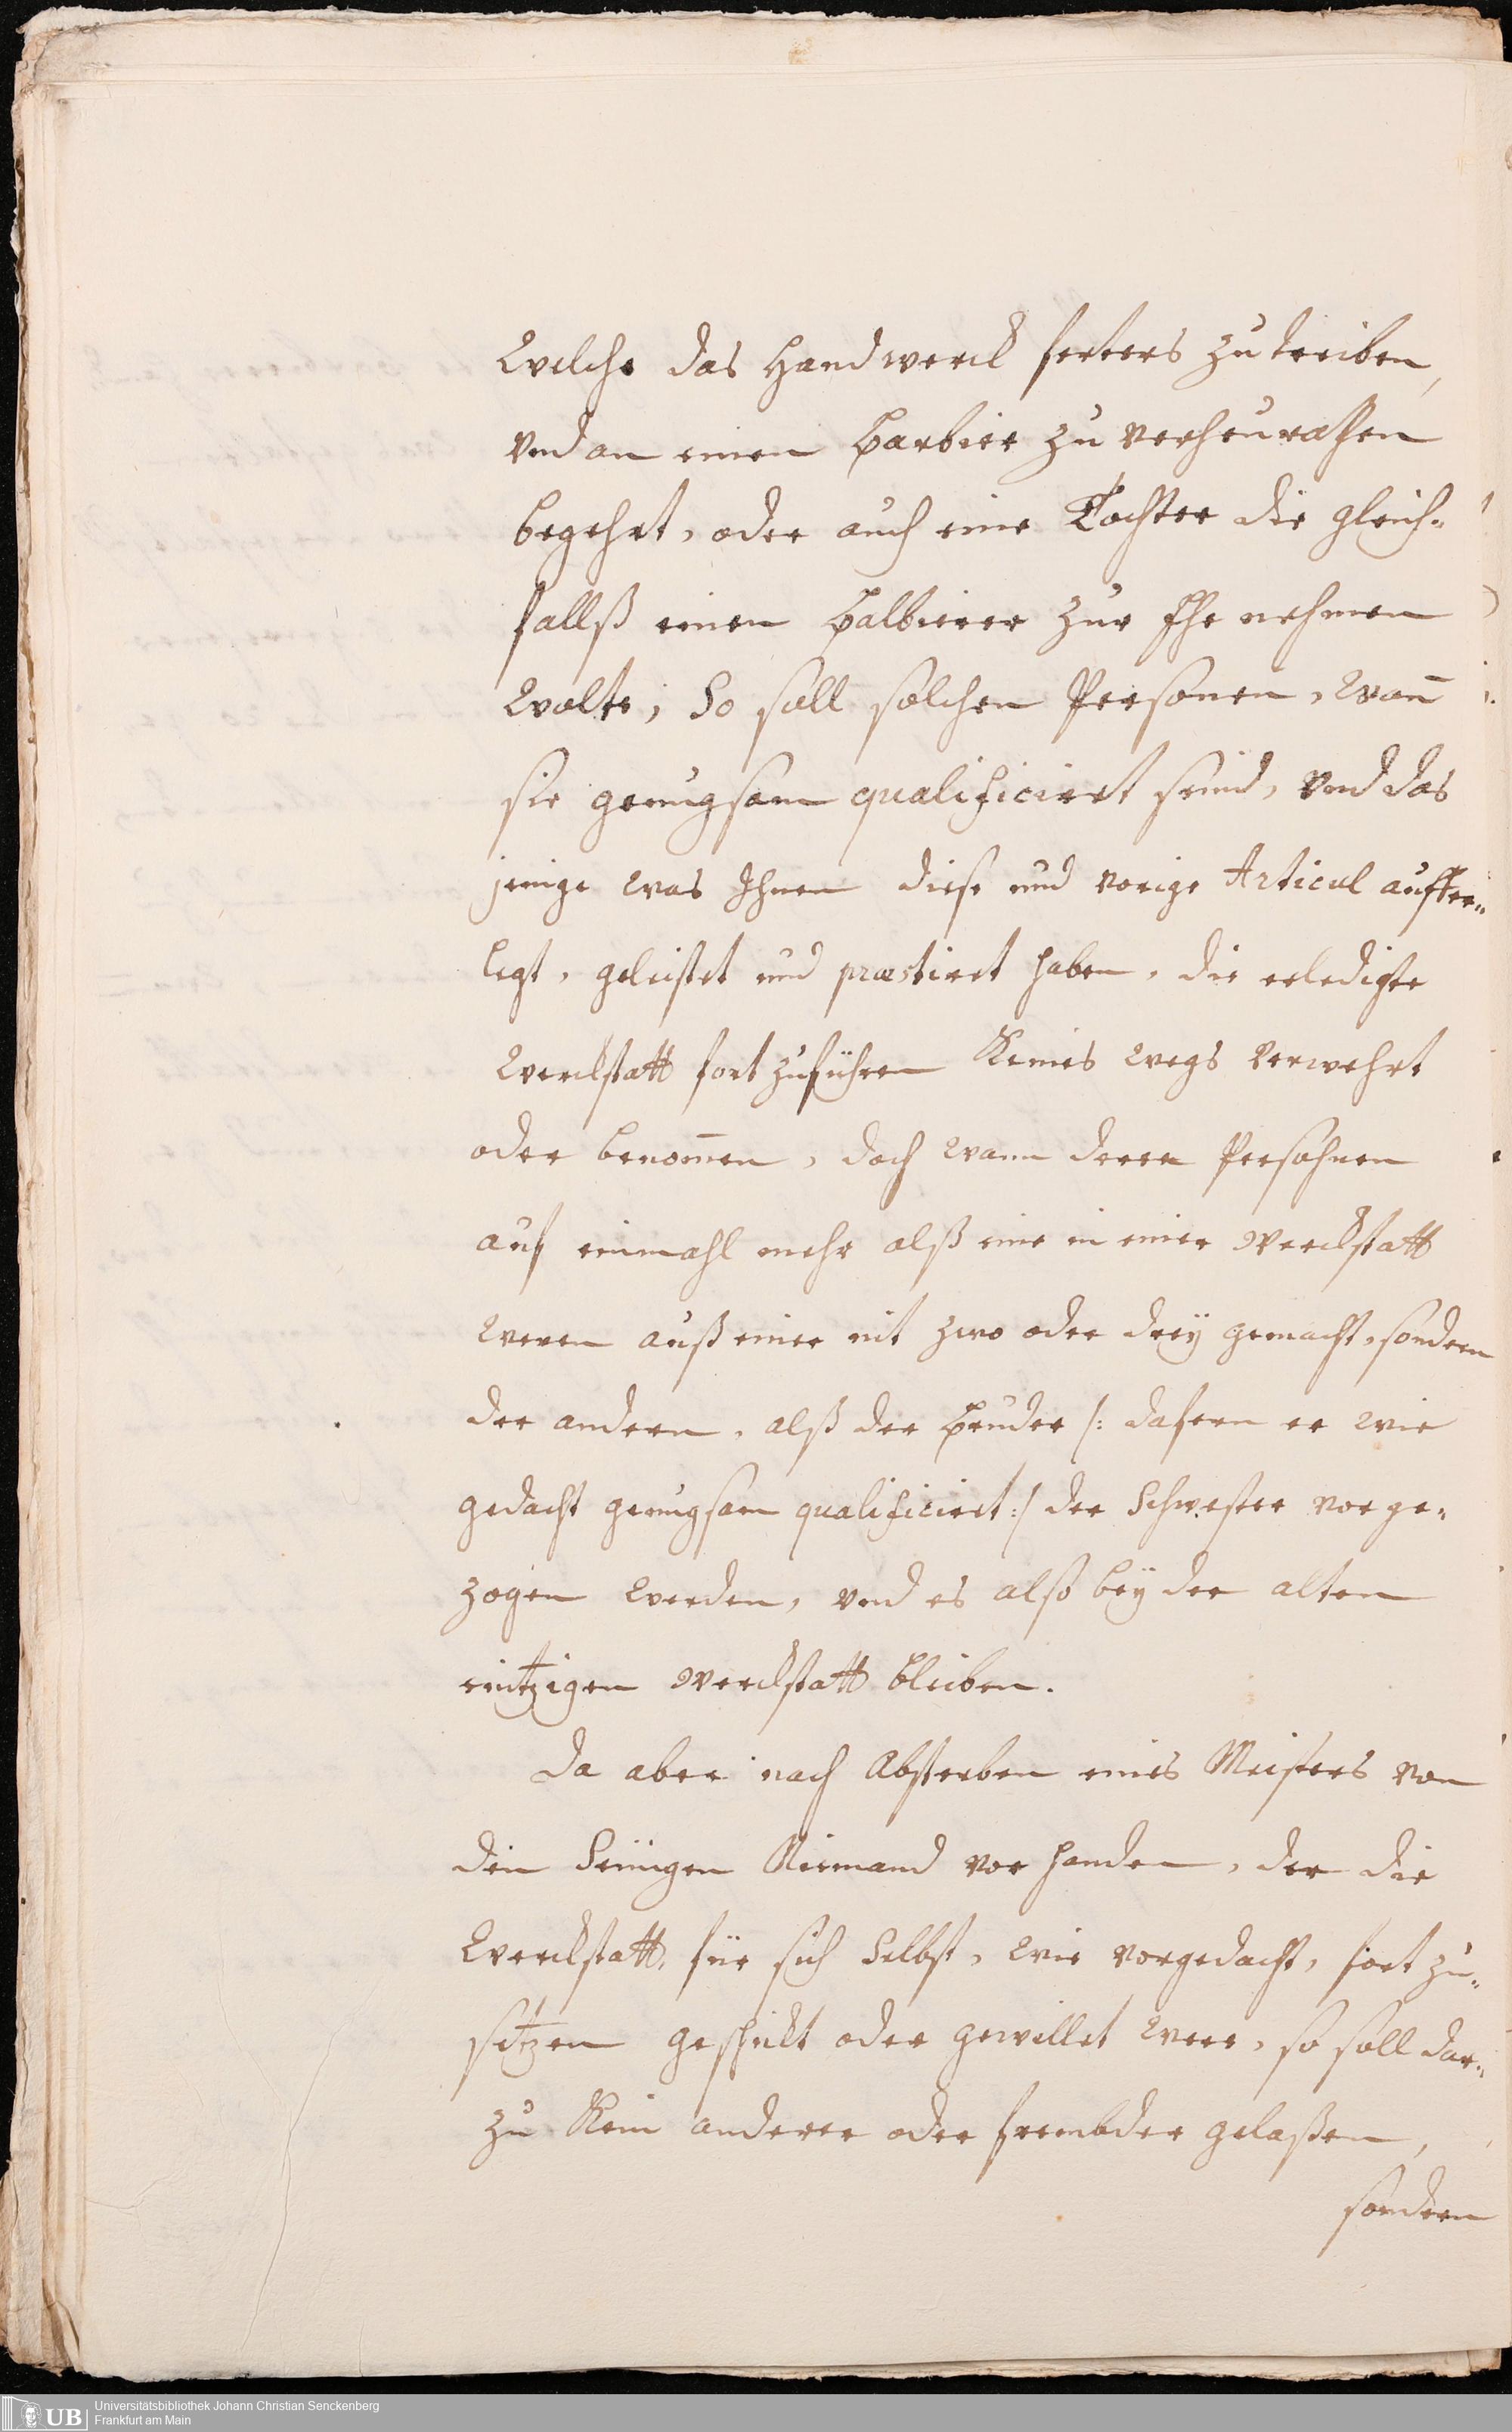 Welche das Handwerck ferters zu treiben,
vnd an einen Barbier zu verheurathen
begehrt, oder auch eine Tochter die gleich-
fallß einen Balbierer zur Ehe nehmen
Wolte; So soll solchen Personen, Wan̄
sie genugsam qualificiret seind, vnd das
jenige was Ihnen diese und vorige Articul auffer-
legt, geleistet und præstiret haben, die erledigte
Werckstatt fort zuführen Keines wegs verwehrt
oder benom̄en, doch wann deren Persohnen
auf einmahl mehr alß eine in einer Werckstatt
weren auß einer nit zwo oder dreÿ gemacht, sondern
der andern, alß der Bruder /: dafern er wie
gedacht genugsam qualificiret :/ der Schwester vorge-
zogen werden, vnd es also beÿ der alten
eintzigen Werckstatt bleiben.
Da aber nach Absterben eines Meisters von
den Seinigen Niemand vorhanden, der die
Werckstatt, für sich Selbst, wie vorgedacht, fort zu-
setzen geschickt oder gewillet were, so soll dar-
zu Kein anderer oder frembder gelaßen,
sondern
Universitätsbibliothek Johann Christian Senckenberg
Frankfurt am Main
UB